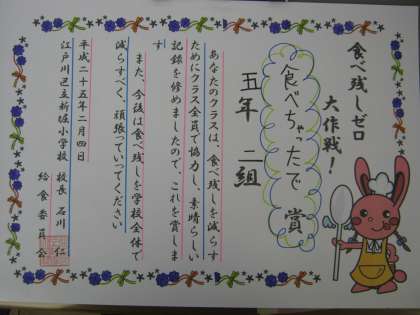 食べ残しゼロ
大作戦！
食べちゃったで賞
五年 二組
あなたのクラスは、食べ残しを減らす
ためにクラス全員で協力し、素晴らしい
記録を修めましたので、これを賞しま
す
また、今後は食べ残しを学校全体で
減らすべく、頑張っていってください
平成二十五年二月四日
江戸川区立新堀小学校 校長 石川 仁
給食委員会